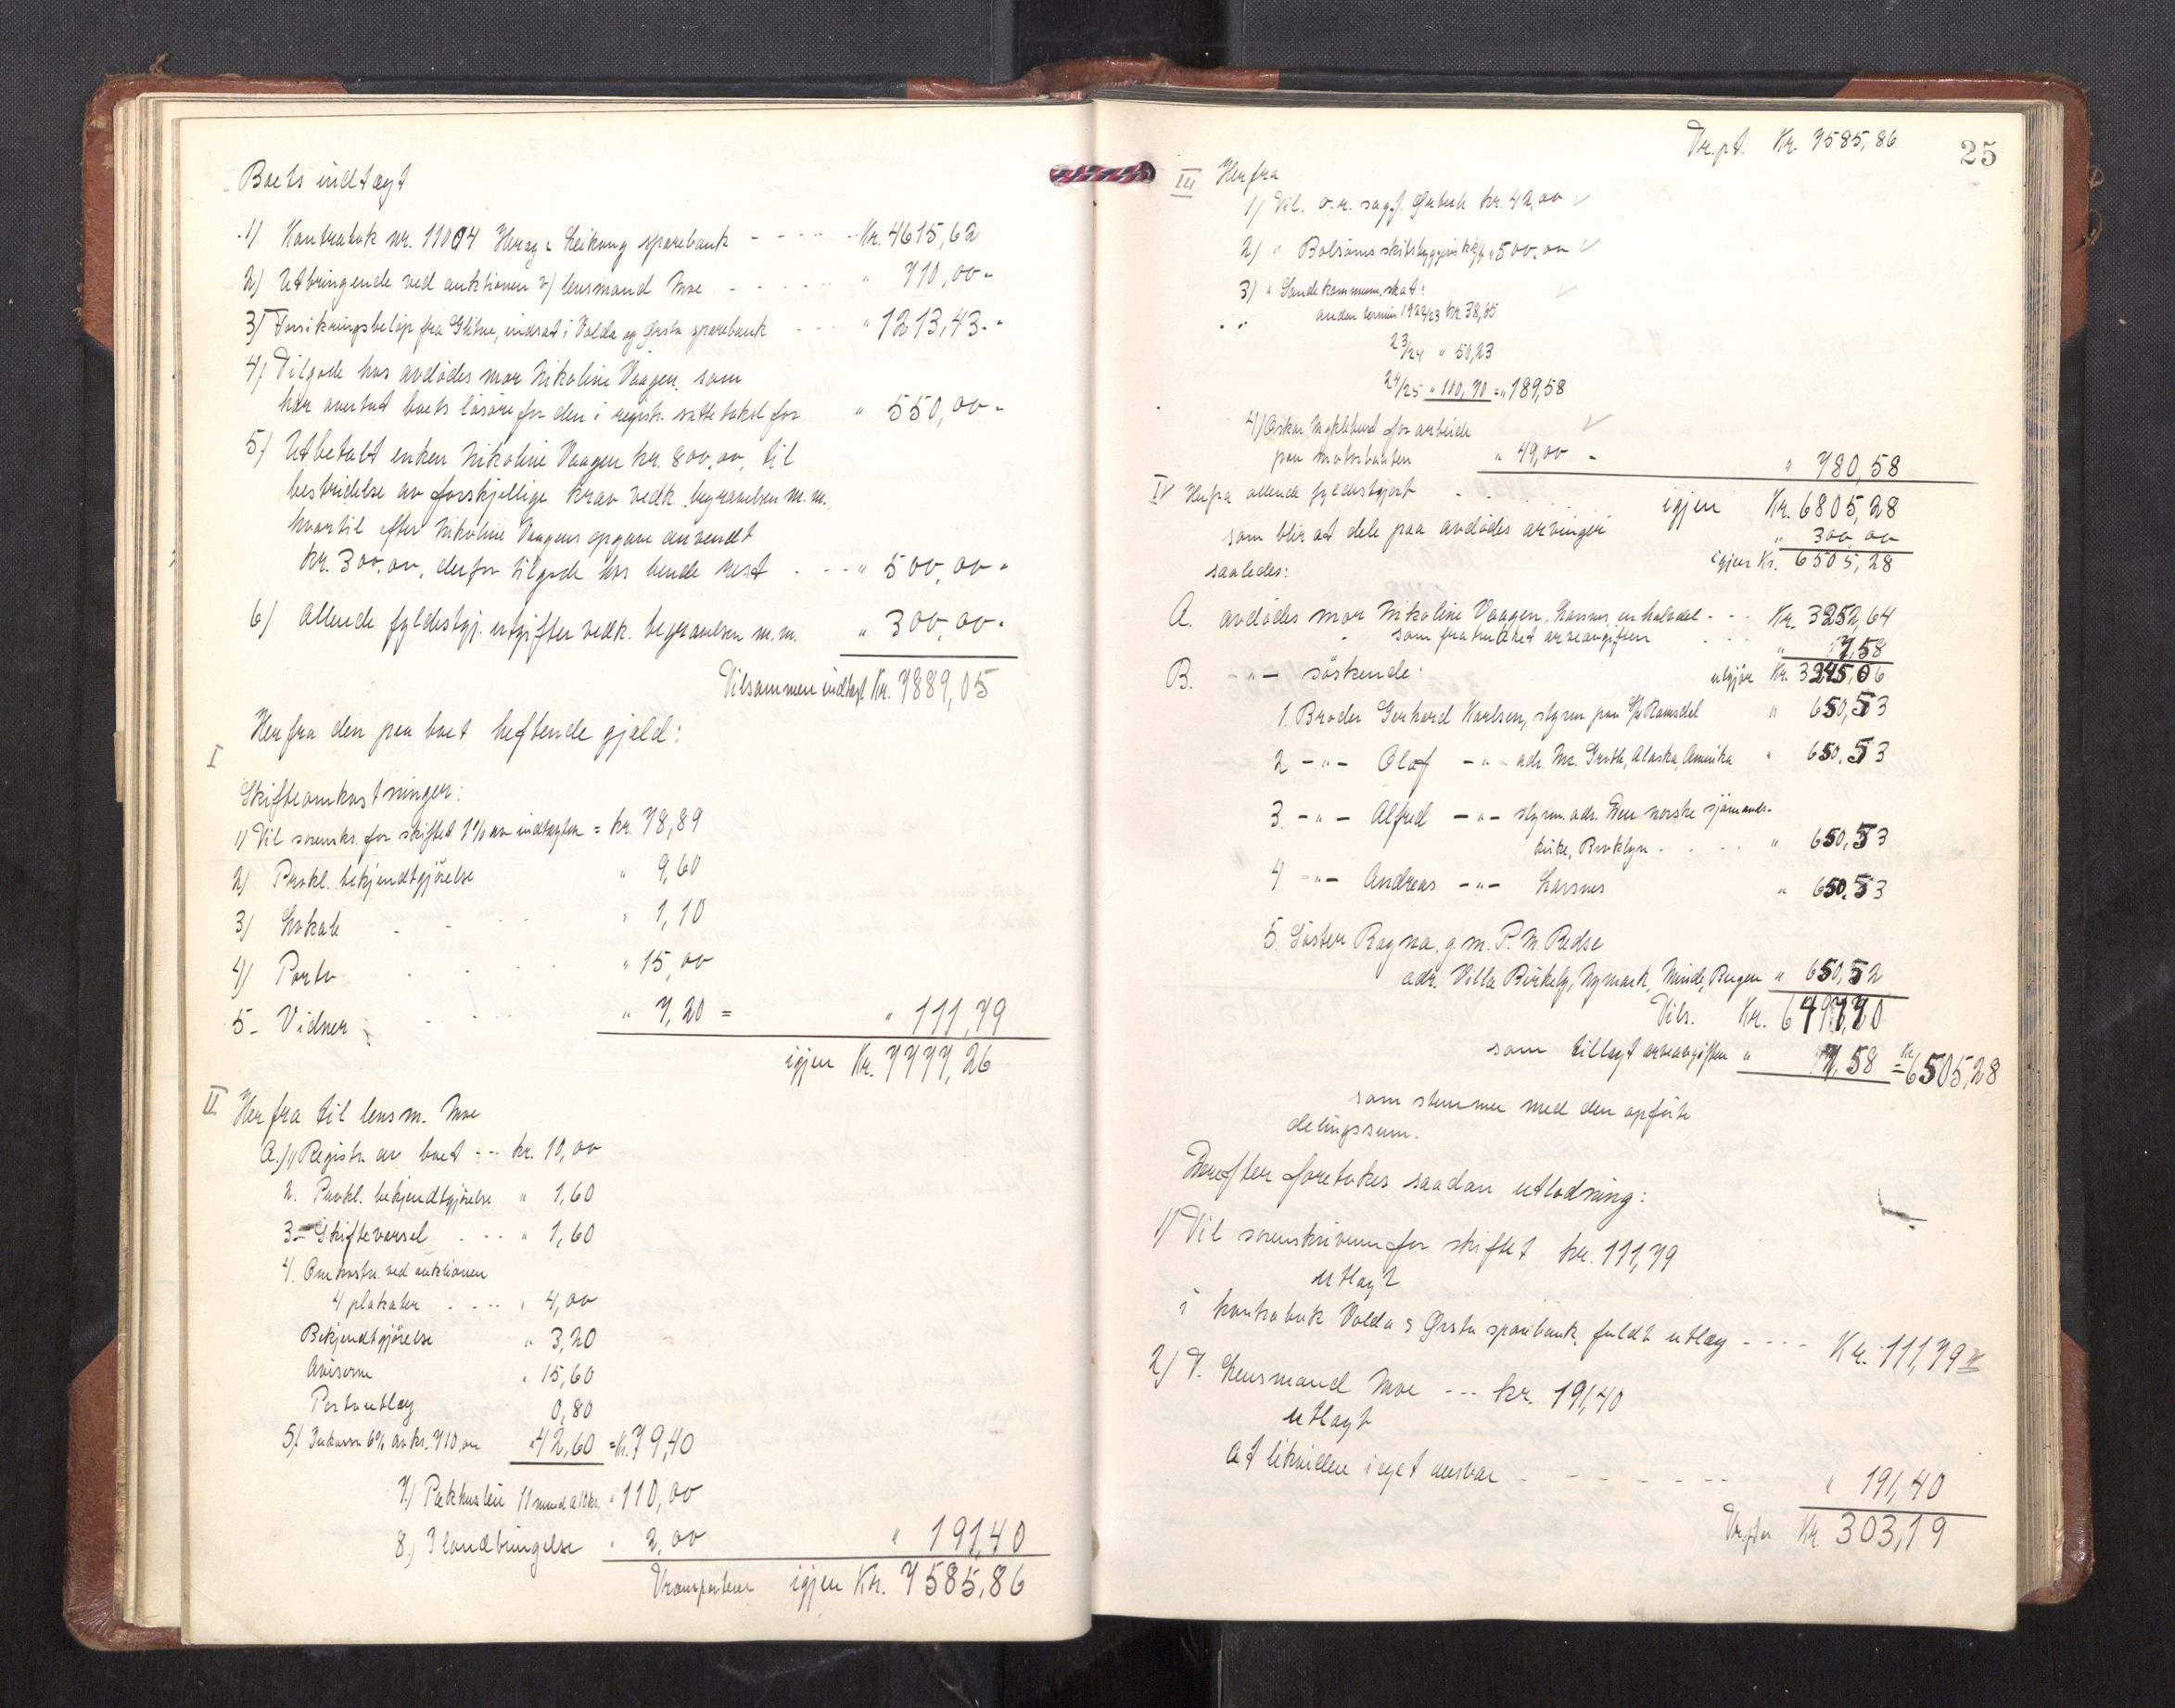 Boets indtægt
1) Kontrabok nr. 11004 Herøy & Leikong sparebank - - - - - Kr. 4615,62
2) Utbringende ved auktionen v/ lensmand Moe - - - - - " 710,00 -
3) Forsikringsbeløp fra Glitne, indsat i Volda og Ørsta sparebank - - - " 1213,43 -
4) Tilgode hos avdødes mor Nikoline Vaagen, som
har overtat boets løsøre for den i registr. satte takst for " 550,00 -
5) Utbetalt enken Nikoline Vaagen kr. 800,00, til
bestridelse av forskjellige krav vedk. begravelsen m.m.
hvortil efter Nikoline Vaagens opgave anvendt
kr. 300,00, derfor tilgode hos hende rest - - - " 500,00 -
6) Allerede fyldestgj. utgifter vedk. begravelsen m.m. " 300,00 -
Tilsammen indtægt Kr. 7889,05
Herfra den paa boet heftende gjæld:
I
Skifteomkostninger:
1) Til sorenskr. for skiftet 1% av indtægten = kr. 78,89
2) Prokl. bekjendtgjørelse " 9,60
3) Lokale - - - " 1,10
4) Porto - - - " 15,00
5- Vidner - - - " 7,20 = " 111,79
igjen Kr. 7777,26
II Herfra til lensm. Moe
A.) 1) Registr. av boet --- kr. 10,00
2. Prokl. bekjendtgjørelse " 1,60
3 - Skiftevarsel - - - " 1,60
4. Omkostn. ved auktionen
4 plakater - - - - " 4,00
Bekjendtgjørelse " 3,20
Aviserne " 15,60
Portoutlæg 0,80
5). Inkasso 6% av kr. 710,00 " 42,60 = Kr. 79,40
7.) Pakhusleie 11 mnd a 10 kr. " 110,00
8.) Ilandbringelse " 2,00 " 191,40
Transporteres igjen Kr. 7585,86
25
Tr.pt. Kr. 7585,86
III Herfra
1) Til o.r. sagf. kr. 42,00
2) " Bolsønes skibsbyggeri " 500,00
3) " Sande kommun. skat:
anden termin 1922/23 kr. 38,65
23/24 " 50,23
24/25 " 100,70 = " 189,58
4) Oskar Myklebust for arbeide
paa motorbaaten " 49,00 - " 780,58
IV Herfra allerede fyldestgjort - - - igjen Kr. 6805,28
" 300,00
som blir at dele paa avdødes arvinger igjen Kr. 6505,28
saaledes:
A. avdødes mor Nikoline Vaagen, Larsnes, en halvdel - - - Kr. 3252,64
som fratrukket arveavgiften - - - " 7,58
utgjør Kr. 3245,06
B. - " - søskende:
1. Broder Gerhard Karlsen, styrm. paa S/S Ramsdal " 650,53
2 - " - Olaf - " - adr. Alaska, Amerika " 650,53
3. - " - Alfred - " - styrm. adr. Den norske sjømands-
kirke, Broklyn - - - " 650,53
4 - " - Andreas - " - Larsnes " 650,53
5. Søster Ragna, g.m. P. M. Redse
adr. Villa Birkely, Nymark, Minde, Bergen " 650,52
Tils. Kr. 6497,70
som tillagt arveavgiften " 7,58 = Kr. 6505,28
som stemmer med den opførte
delingssum.
Derefter foretokes saadan utlodning:
1) Til sorenskriveren for skiftet kr. 111,79
utlagt
i kontrabok Volda & Ørsta sparebank, fuldt utlæg - - - - Kr. 111,79
2) T. Lensmand Moe --- kr. 191,40
utlagt
At likvidere i eget ansvar - - - - - - " 191,40
Tr.pter Kr. 303,19